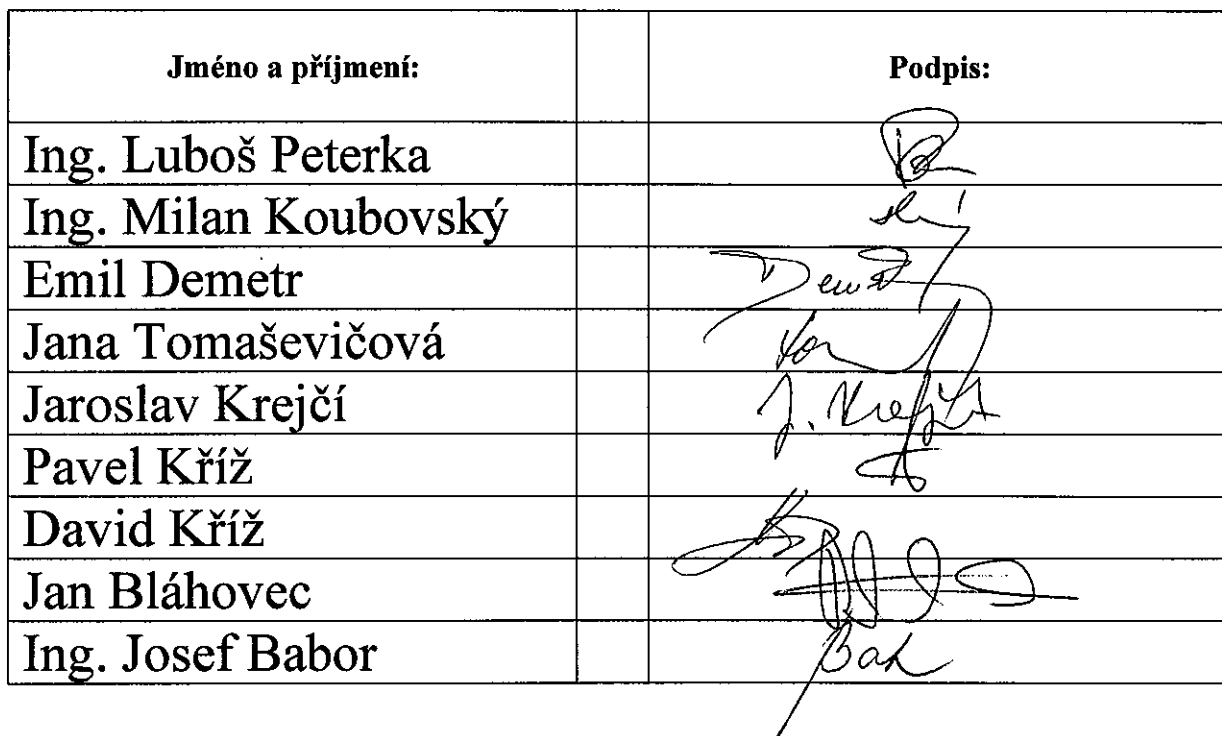 Jméno a příjmení: Podpis:
Ing. Luboš Peterka
Ing. Milan Koubovský
Emil Demetr
Jana Tomaševičová
Jaroslav Krejčí J. Krejčí
Pavel Kříž
David Kříž
Jan Bláhovec
Ing. Josef Babor